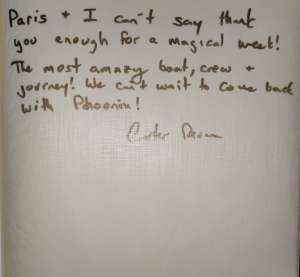 Paris + I can't say thank
you enough for a magical week!
The most amazing boat, crew +
journey! We can't wait to come back
with Phoenix!
Carter